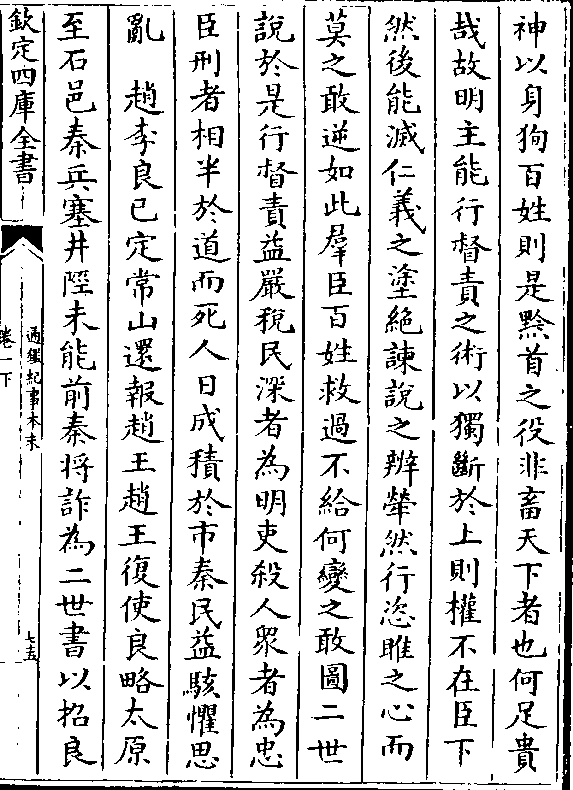 神以身狥百姓則是黔首之役非畜天下者也何足貴
哉故明主能行督責之術以獨斷於上則權不在臣下
然後能滅仁義之塗絶諫說之辨犖然行恣睢之心而
莫之敢逆如此羣臣百姓救過不給何變之敢圖二世
說於是行督責益嚴稅民深者為明吏殺人衆者為忠
臣刑者相半於道而死人日成積於市秦民益駭懼思
亂　趙李良已定常山還報趙王趙王復使良略太原
至石邑秦兵塞井陘未能前秦將詐為二世書以招良
欽定四庫全書
通鑑紀事本末
卷一下
七五